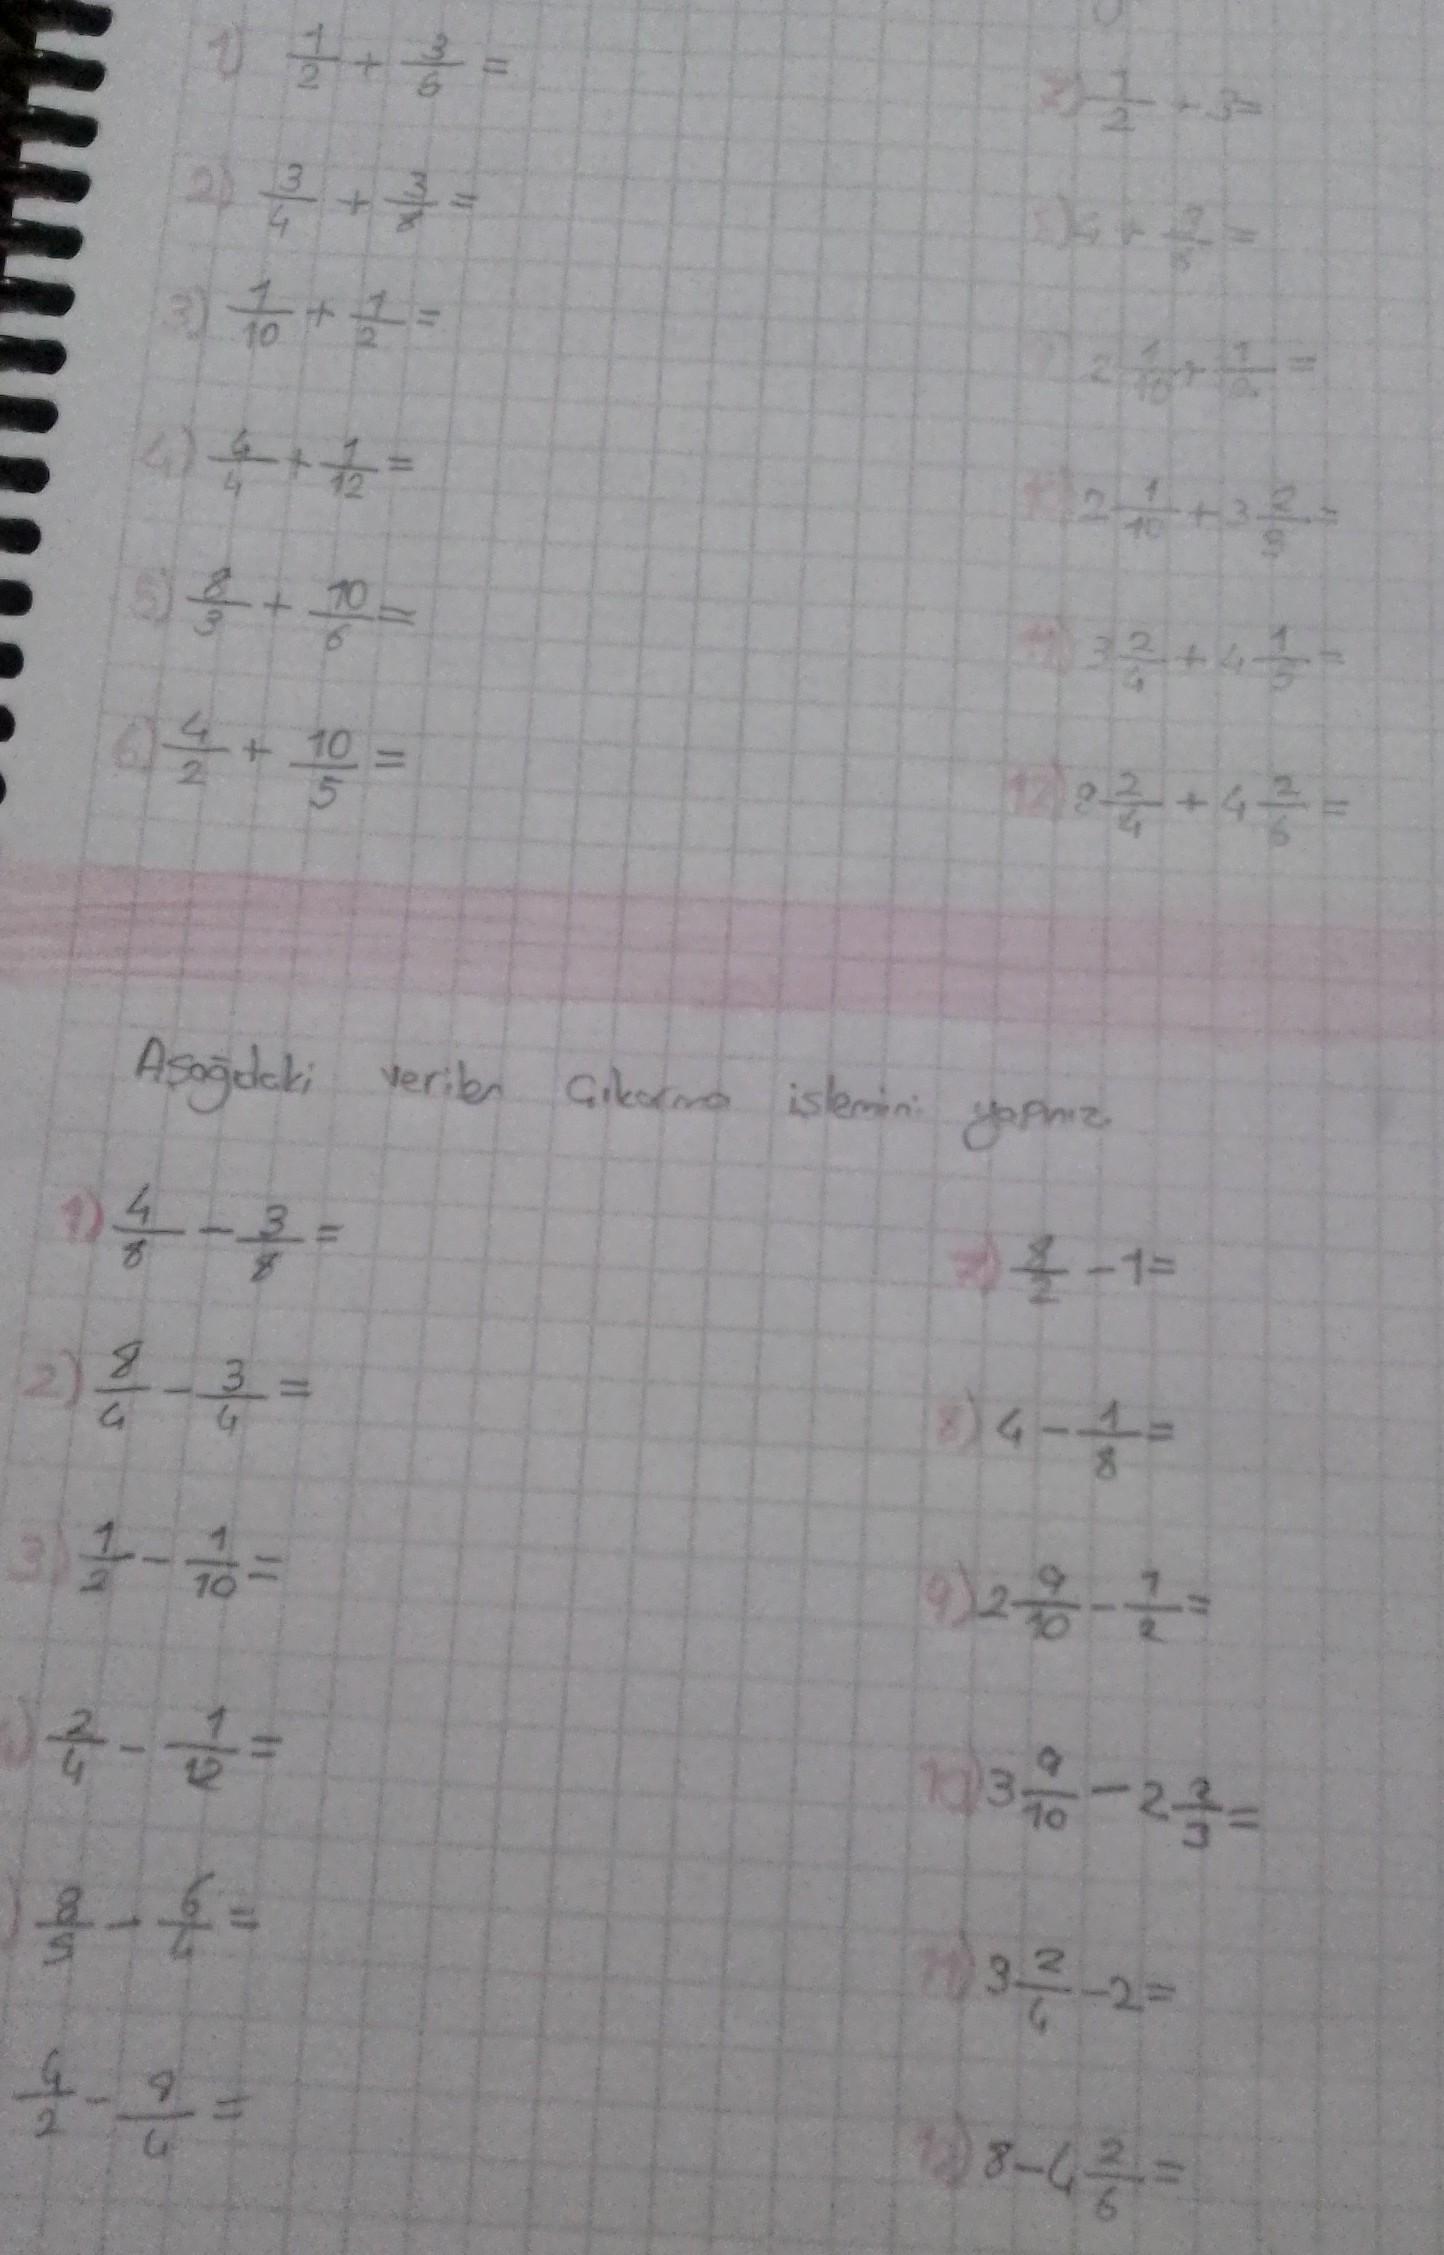 1) 1/2 + 3/6 =
2) 3/4 + 3/8 =
3) 1/10 + 1/2 =
4) 4/4 + 1/12 =
5) 8/3 + 10/6 =
6) 4/2 + 10/5 =
7) 1/2 + 3 =
2 1/10 + 1/2 =
2 1/10 + 3 2/3 =
11) 3 2/4 + 4 1/5 =
12) 2/4 + 4 2/6 =
Aşağıdaki verilen çıkarma işlemini yapınız.
1) 4/8 - 3/8 =
2) 8/4 - 3/4 =
3) 1/2 - 1/10 =
) 2/4 - 1/12 =
) - 6/4 =
4/2 - 8/4 =
7) 8/2 - 1 =
8) 4 - 1/8 =
9) 2 9/10 - 1/2 =
10) 3 9/10 - 2 2/3 =
11) 3 2/4 - 2 =
12) 8 - 4 2/6 =